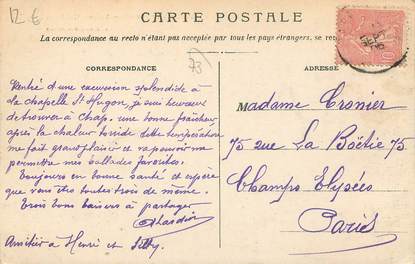 12 €
CARTE POSTALE
La correspondance au recto n'étant pas acceptée par tous les pays étrangers, se re
73
CORRESPONDANCE
ADRESSE
Rentrée d'une excursion splendide à
la chapelle St Hugon, je suis heureuse
de trouver à Chap. une bonne fraîcheur
après la chaleur torride cette température
me fait grand plaisir et va pouvoir me
permettre mes ballades favorites.
Toujours en bonne santé et espère
que vous êtes toutes trois de même.
Trois bons baisers à partager
Amitiés à Henri et
Madame Cronier
75 rue La Boëtie 75
Champs Elysées
Paris